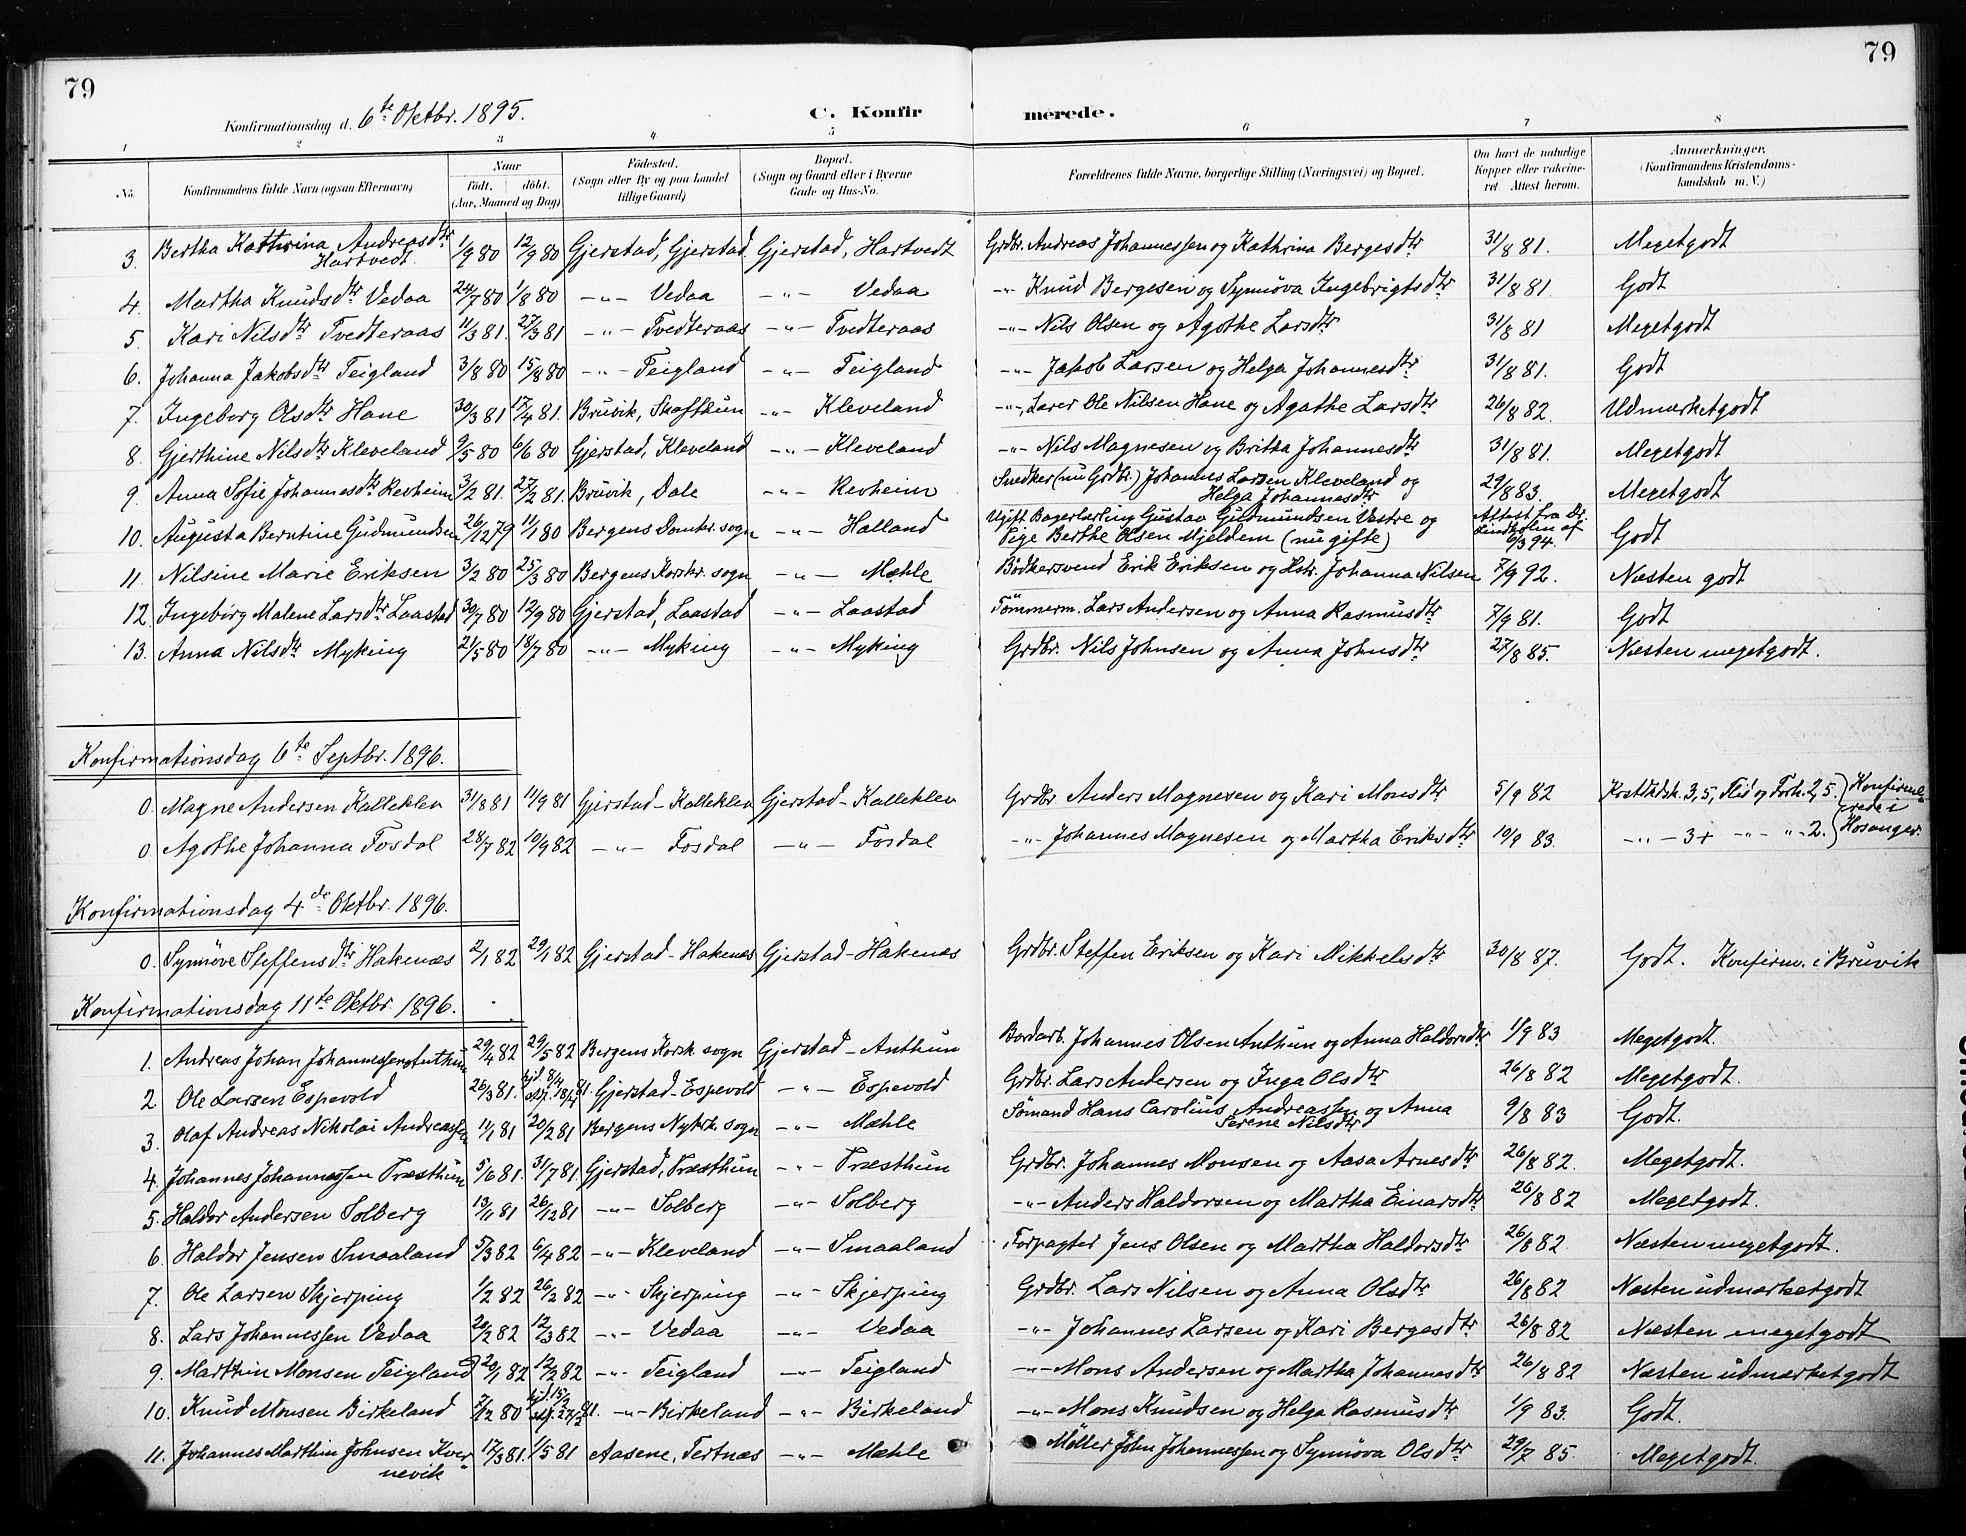 79 79
Konfirmationsdag d. 6te Oktbr. 1895. C. Konfir merede.
1 2 3 4 5 6 7 8
No. Konfirmandens fulde Navn (ogsaa Efternavn) Naar födt. döbt. (Aar, Maaned og Dag) Födested. (Sogn eller By og paa Landet tillige Gaard) Bopæl. (Sogn og Gaard eller i Byerne Gade og Hus-No. Forældrenes fulde Navne, borgerlige Stilling (Næringsvei) og Bopæl. Om havt de naturlige Kopper eller vakcineret. Attest herom. Anmærkninger. (Konfirmandens Kristendomskundskab m. V.)
3. Bertha Kathrina Andreasdtr Hartvedt 1/9 80 12/9 80 Gjerstad, Gjerstad Gjerstad, Hartvedt Grdbr. Andreas Johannessen og Kathrina Bergesdtr 31/8 81. Megetgodt
4. Martha Knudsdtr Vedaa 24/7 80 1/8 80 -"- Vedaa -"- Vedaa -"- Knud Bergesen og Synnöva Ingebrigtsdtr 31/8 81. Godt
5. Kari Nilsdtr Tvedteraas 11/3 81. 27/3 81 -"- Tvedteraas -"- Tvedteraas -"- Nils Olsen og Agothe Larsdtr 31/8 81 Megetgodt
6. Johanna Jakobsdtr Teigland 3/8 80 15/8 80 -"- Teigland -"- Teigland -"- Jakob Larsen og Helga Johannesdtr 31/8 81. Godt
7. Ingeborg Olsdtr Hane 30/3 81 17/4 81. Bruvik, Skafthun -"- Kleveland -"- Lærer Ole Nilsen Hane og Agathe Larsdtr 26/8 82 Udmærketgodt
8. Gjerthine Nilsdtr Kleveland 9/5 80 6/6 80 Gjerstad, Kleveland -"- Kleveland -"- Nils Magnesen og Britha Johannesdtr 31/8 81. Megetgodt
9. Anna Sofie Johannesdtr Revheim 3/2 81. 27/2 81. Bruvik, Dale -"- Revheim Snedker (nu Grdbr.) Johannes Larsen Kleveland og Helga Johannesdtr 29/8 83. Megetgodt
10. Augusta Berntine Gudmundsen 26/12 79 11/1 80 Bergens Domkr. sogn -"- Halland Ugift Bagerlærling Gustav Gudmundsen Vestre og Pige Berthe Olsen Mjeldem (nu gifte) Attest fra Dr. Lindholm af 6/3 94. Godt
11. Nilsine Marie Eriksen 3/2 80 25/3 80 Bergens Korskr. sogn -"- Mæhle Bödkersvend Erik Eriksen og Hstr. Johanna Nilsen 7/9 92. Næsten godt
12. Ingeborg Malene Larsdtr Laastad 30/7 80 12/9 80 Gjerstad, Laastad -"- Laastad Tömmerm. Lars Andersen og Anna Rasmusdtr 7/9 81. Godt
13. Anna Nilsdtr Myking 21/5 80 18/7 80 -"- Myking -"- Myking Grdbr. Nils Johnsen og Anna Johnsdtr 27/8 85. Næsten megetgodt.
Konfirmationsdag 6te Septbr. 1896.
0. Magne Andersen Kalleklev 31/8 81 11/9 81 Gjerstad-Kalleklev Gjerstad-Kalleklev Grdbr. Anders Magnesen og Kari Monsdtr 5/9 82 Kristdsk. 3,5, Flid og Forh. 2,5. Konfirmerede i
0 Agothe Johanna Fosdal 28/7 82 10/9 82 -"- Fosdal -"- Fosdal -"- Johannes Magnesen og Martha Eriksdtr 10/9 83. -"- 3+ -"- "- 2. Hosanger.
Konfirmationsdag 4de Oktbr. 1896.
0. Synnöve Steffensdtr Hakenæs 2/1 82 29/1 82 Gjerstad-Hakenæs Gjerstad-Hakenæs Grdbr. Steffen Eriksen og Kari Mikkelsdtr 30/8 87. Godt. Konfirm. i Bruvik
Konfirmationsdag 11te Oktbr. 1896.
1. Andreas Johan Johannessen Anthun 29/4 82 29/5 82 Bergens Korsk. sogn Gjerstad-Anthun Bordarb. Johannes Olsen Anthun og Anna Haldorsdtr 1/9 83 Megetgodt.
2 Ole Larsen Espevold 26/3 81. hjd. 8/4 st. 18/4 81. Gjerstad-Espevold -"- Espevold Grdbr. Lars Andersen og Inga Olsdtr 26/8 82 Megetgodt.
3. Olaf Andreas Nikolai Andreassen 11/1 81 20/2 81 Bergens Nykrk. sogn -"- Mæhle Sömand Hans Carolius Andreassen og Anna Serene Nilsdtr 9/8 83 Godt.
4. Johannes Johannessen Træsthun 5/6 81. 31/7 81. Gjerstad, Træsthun -"- Træsthun Grdbr. Johannes Monsen og Aasa Arnesdtr 26/8 82. Megetgodt.
5. Haldor Andersen Solberg 13/11 81 26/12 81 -"- Solberg -"- Solberg -"- Anders Haldorsen og Martha Einarsdtr 26/8 82 Megetgodt.
6 Haldor Jensen Smaaland 5/3 82 6/4 82 -"- Kleveland -"- Smaaland Forpagter Jens Olsen og Martha Haldorsdtr 26/8 82. Næsten megetgodt.
7. Ole Larsen Skjerping 1/2 82 26/2 82 -"- Skjerping -"- Skjerping Grdbr. Lars Nilsen og Anna Olsdtr 26/8 82 Næsten udmærketgodt
8. Lars Johannessen Vedaa 20/2 82 12/3 82 -"- Vedaa -"- Vedaa -"- Johannes Larsen og Kari Bergesdtr 26/8 82 Næsten megetgodt
9. Marthin Monsen Teigland 20/1 82 12/2 82 -"- Teigland -"- Teigland -"- Mons Andersen og Martha Johannesdtr 26/8 82 Næsten udmærketgodt
10. Knud Monsen Birkeland 7/12 80 hjd. 15/2 st. 27/2 81. -"- Birkeland -"- Birkeland -"- Mons Knudsen og Helga Rasmusdtr 1/9 83. Godt.
11. Johannes Marthin Johnsen Kvernevik 17/3 81. 1/5 81 Aasene, Tertnæs -"- Mæhle Möller John Johannessen og Synnöva Olsdtr 29/7 85. Megetgodt.